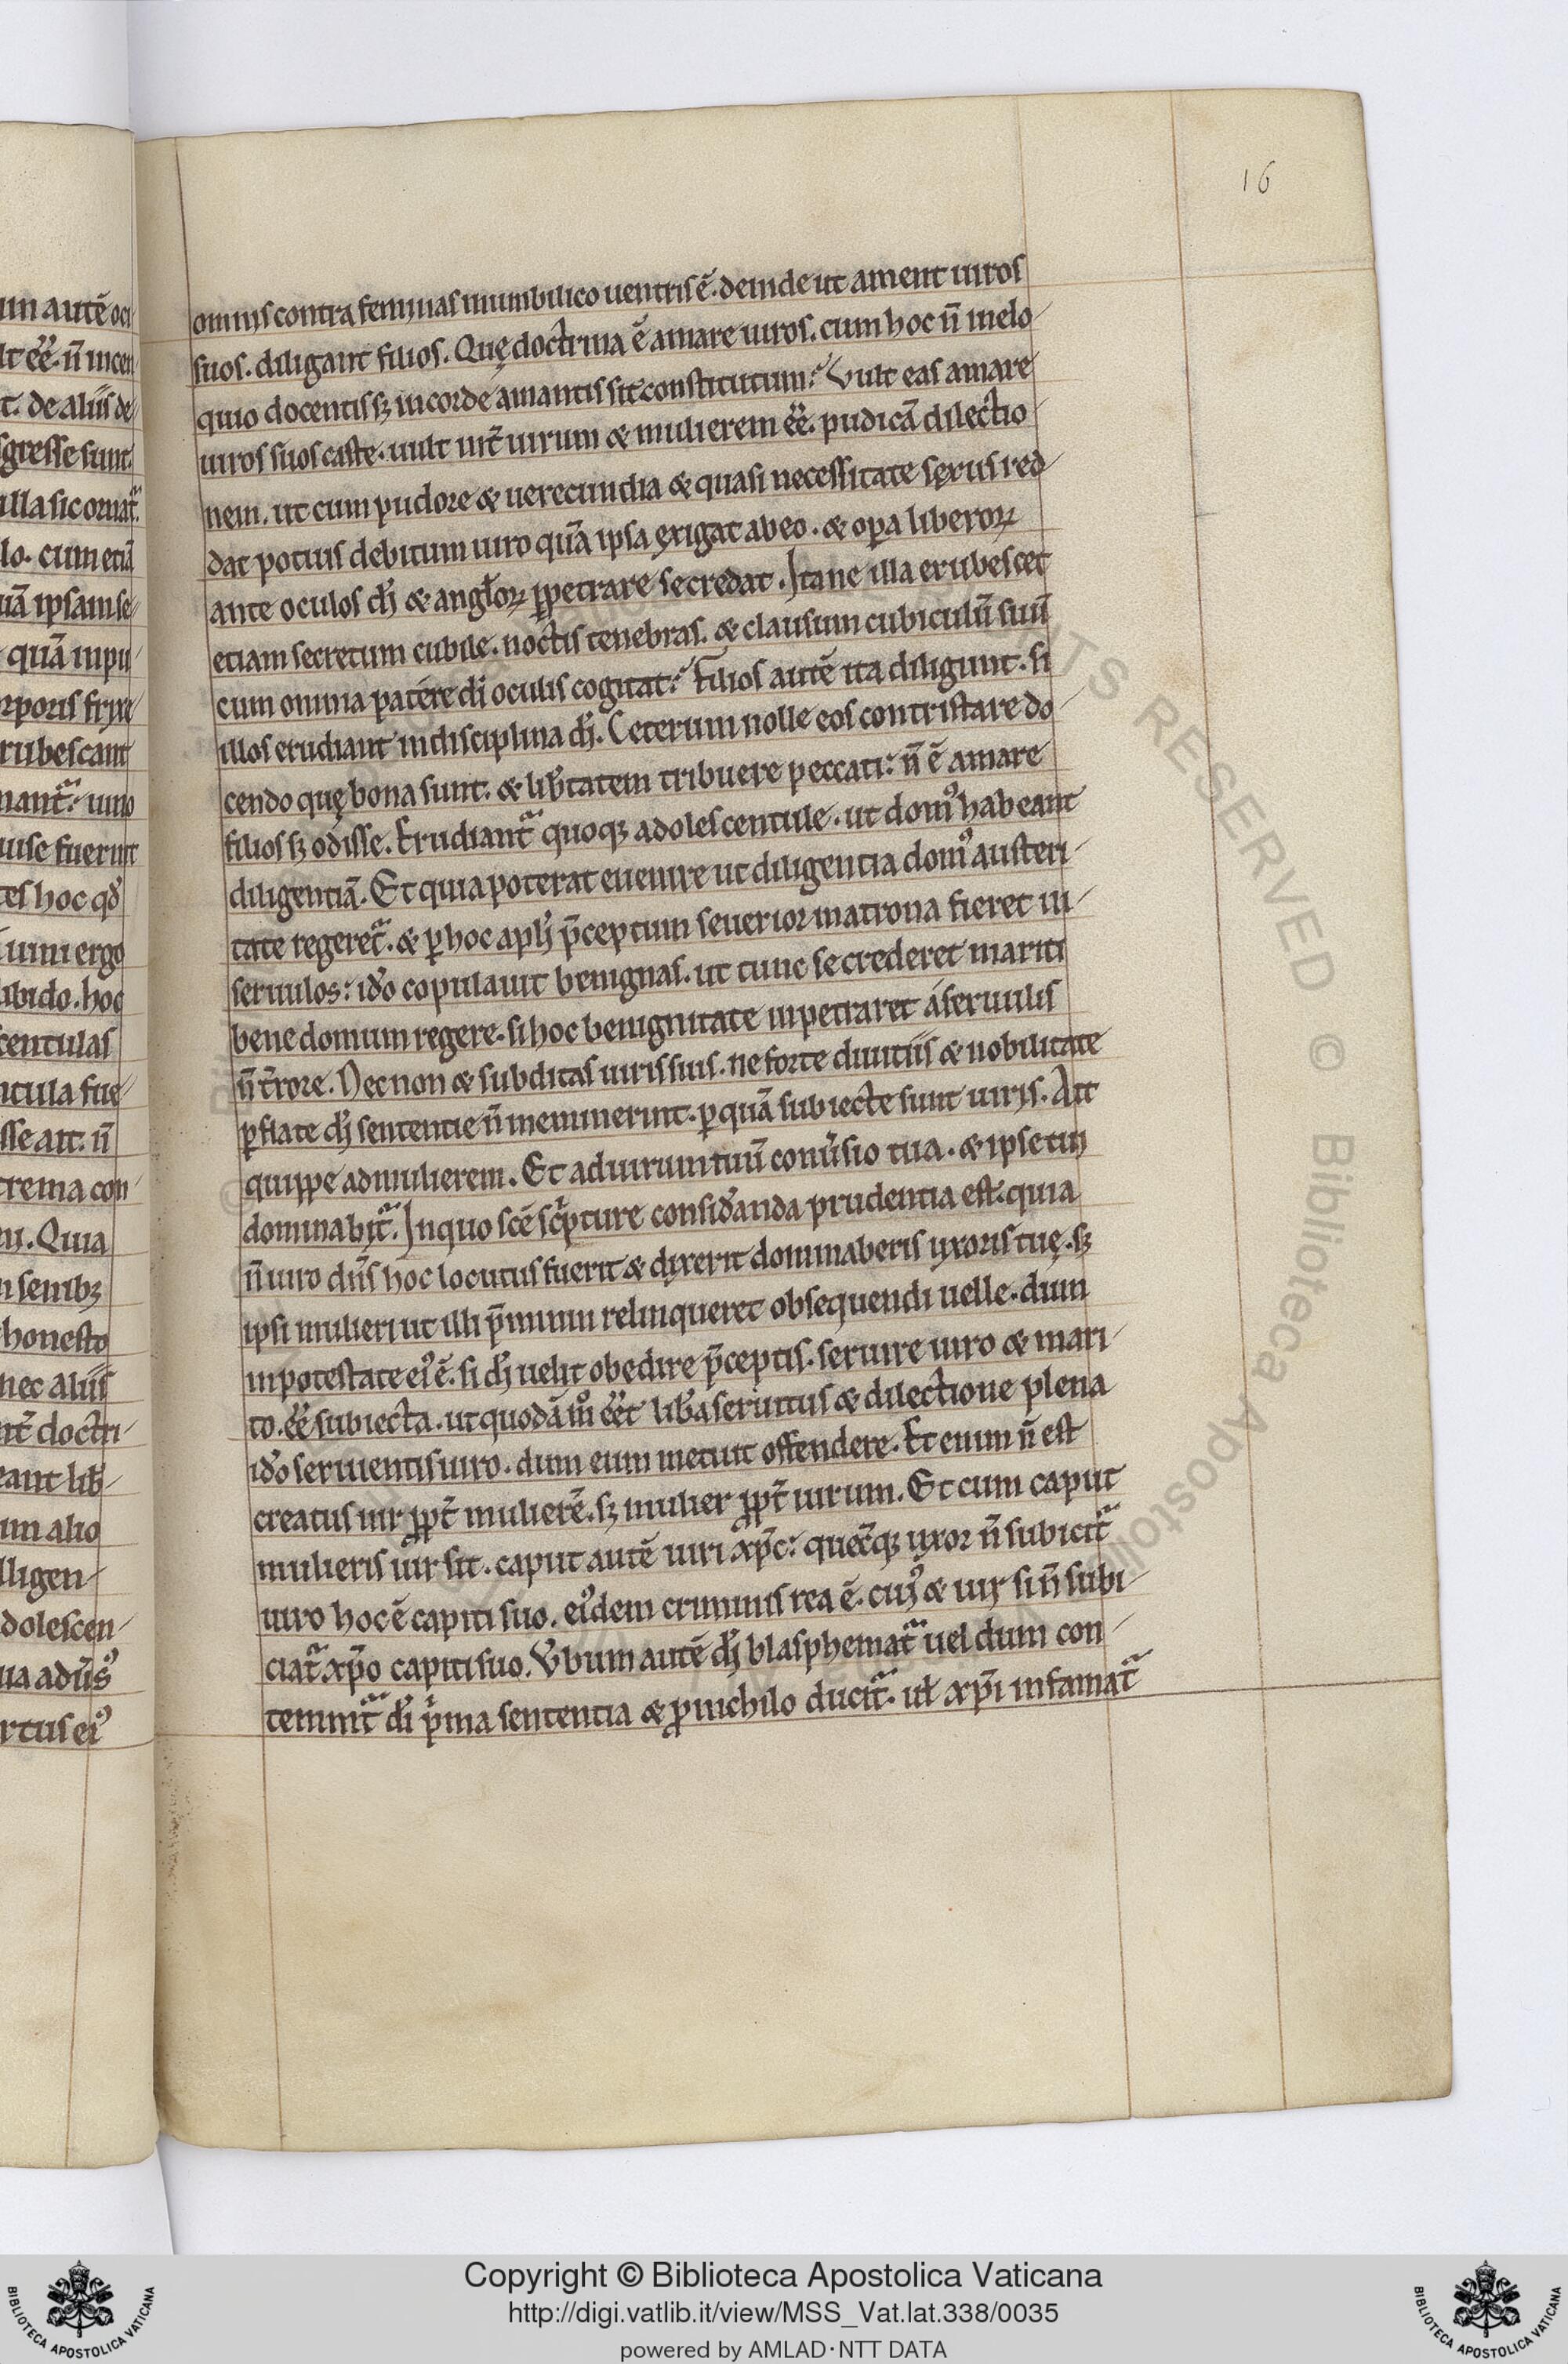 16
omnis contra feminas in umbilico uentris ē. deinde ut ament uiros
suos. diligant filios. Quę doctrina ē amare uiros. cum hoc n̄ in elo
quio docentis sꝫ in corde amantis sit constitutum? Vult eas amare
uiros suos caste. uult int̄ uirum & mulierem eē. pudicā dilectio
nem. ut cum pudore & uerecundia & quasi necessitate sexus red
dat potius debitum uiro quā ipsa exigat ab eo. & opa liberoꝝ
ante oculos di & angl̄oꝝ ꝑpetrare se credat. Itane illa erubescet
etiam secretum cubile. noctis tenebras. & clausum cubiculū suū
cum omnia patere di oculis cogitat? Filios autē ita diligunt. si
illos erudiant in disciplina di. Ceterum nolle eos contristare do
cendo quę bona sunt. & lib̄tatem tribuere peccati: n̄ ē amare
filios sꝫ odisse. Erudiant᷑ quoqꝫ adolescentule. ut domꝰ habeant
diligentiā. Et quia poterat euenire ut diligentia domꝰ austeri
tate regeret᷑. & ꝑ hoc apli p̄ceptum seuerior matrona fieret in
seruulos: ido copulauit benignas. ut tunc se crederet mariti
bene domum regere. si hoc benignitate inpetraret a seruulis
n̄ t̄rore. Necnon & subditas uiris suis. ne forte diuitiis & nobilitate
ꝑflate di sententie n̄ meminerint. ꝑ quā subiecte sunt uiris. Ait
quippe ad mulierem. Et ad uirum tuū conu̓sio tua. & ipse tui
dominabit᷑. In quo scē sc̓pture considanda prudentia est. quia
n̄ uiro dn̄s hoc locutus fuerit & dixerit dominaberis uxoris tuę. sꝫ
ipsi mulieri ut illi p̄mium relinqueret obsequendi uelle. dum
in potestate eiꝰ ē. si di uelit obedire p̄ceptis. seruire uiro & mari
to. eē subiecta. ut quodā m̊ eēt lib̄a seruitus & dilectione plena
ido seruientis uiro. dum eum metuit offendere. Et enim n̄ est
creatus uir ꝓpt̄ mulierē. sꝫ mulier ꝓpt̄ uirum. Et cum caput
mulieris uir sit. caput autē uiri xp̄c: quec̄qꝫ uxor n̄ subicit᷑
uiro hoc ē capiti suo. eiꝰdem criminis rea ē. cuiꝰ & uir si n̄ subi
ciat᷑ xp̄o capiti suo. V̓bum autē di blasphemat᷑ uel dum con
temnit᷑ di p̓ma sententia & ꝓ nichilo ducit᷑. ul̄ xp̄i infamat᷑
Copyright © Biblioteca Apostolica Vaticana
http://digi.vatlib.it/view/MSS_Vat.lat.338/0035
powered by AMLAD·NTT DATA
BIBLIOTECA APOSTOLICA VATICANA
BIBLIOTECA APOSTOLICA VATICANA